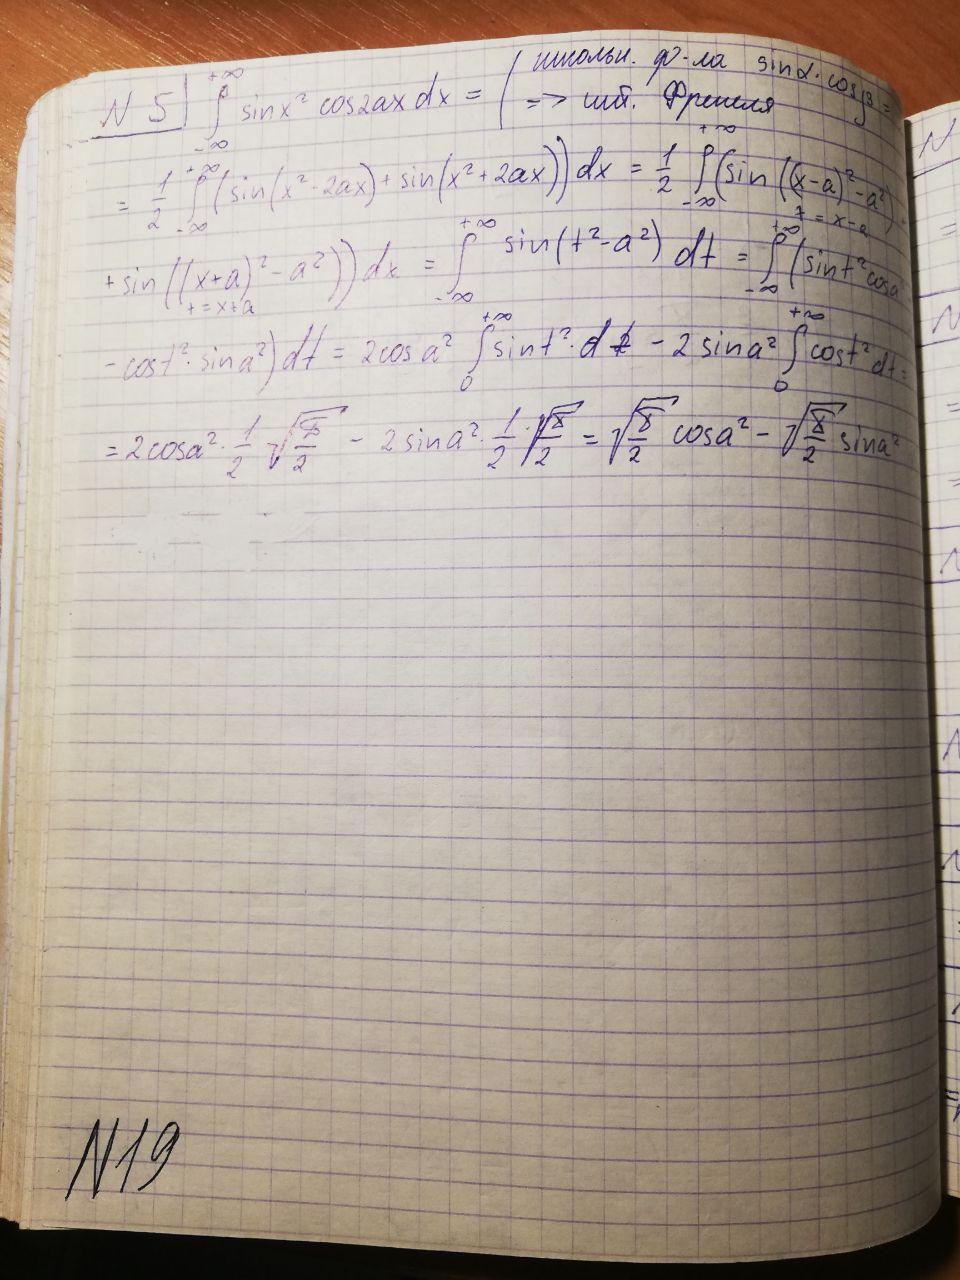 N 5 ∫_{-∞}^{+∞} sinx² cos2ax dx = ( школьн. ф-ла sinα·cosβ =
=> инт. Френеля
= 1/2 ∫_{-∞}^{+∞} (sin(x²-2ax)+sin(x²+2ax)) dx = 1/2 ∫_{-∞}^{+∞} (sin((x-a)²-a²)
t = x-a
+ sin((x+a)²-a²)) dx = ∫_{-∞}^{+∞} sin(t²-a²) dt = ∫_{-∞}^{+∞} (sint² cosa²
t = x+a
- cost²·sina²) dt = 2cosa² ∫_{0}^{+∞} sint²·dt - 2sina² ∫_{0}^{+∞} cost² dt =
= 2cosa²·1/2 √(π/2) - 2sina²·1/2·√(π/2) = √(π/2) cosa² - √(π/2) sina²
N19